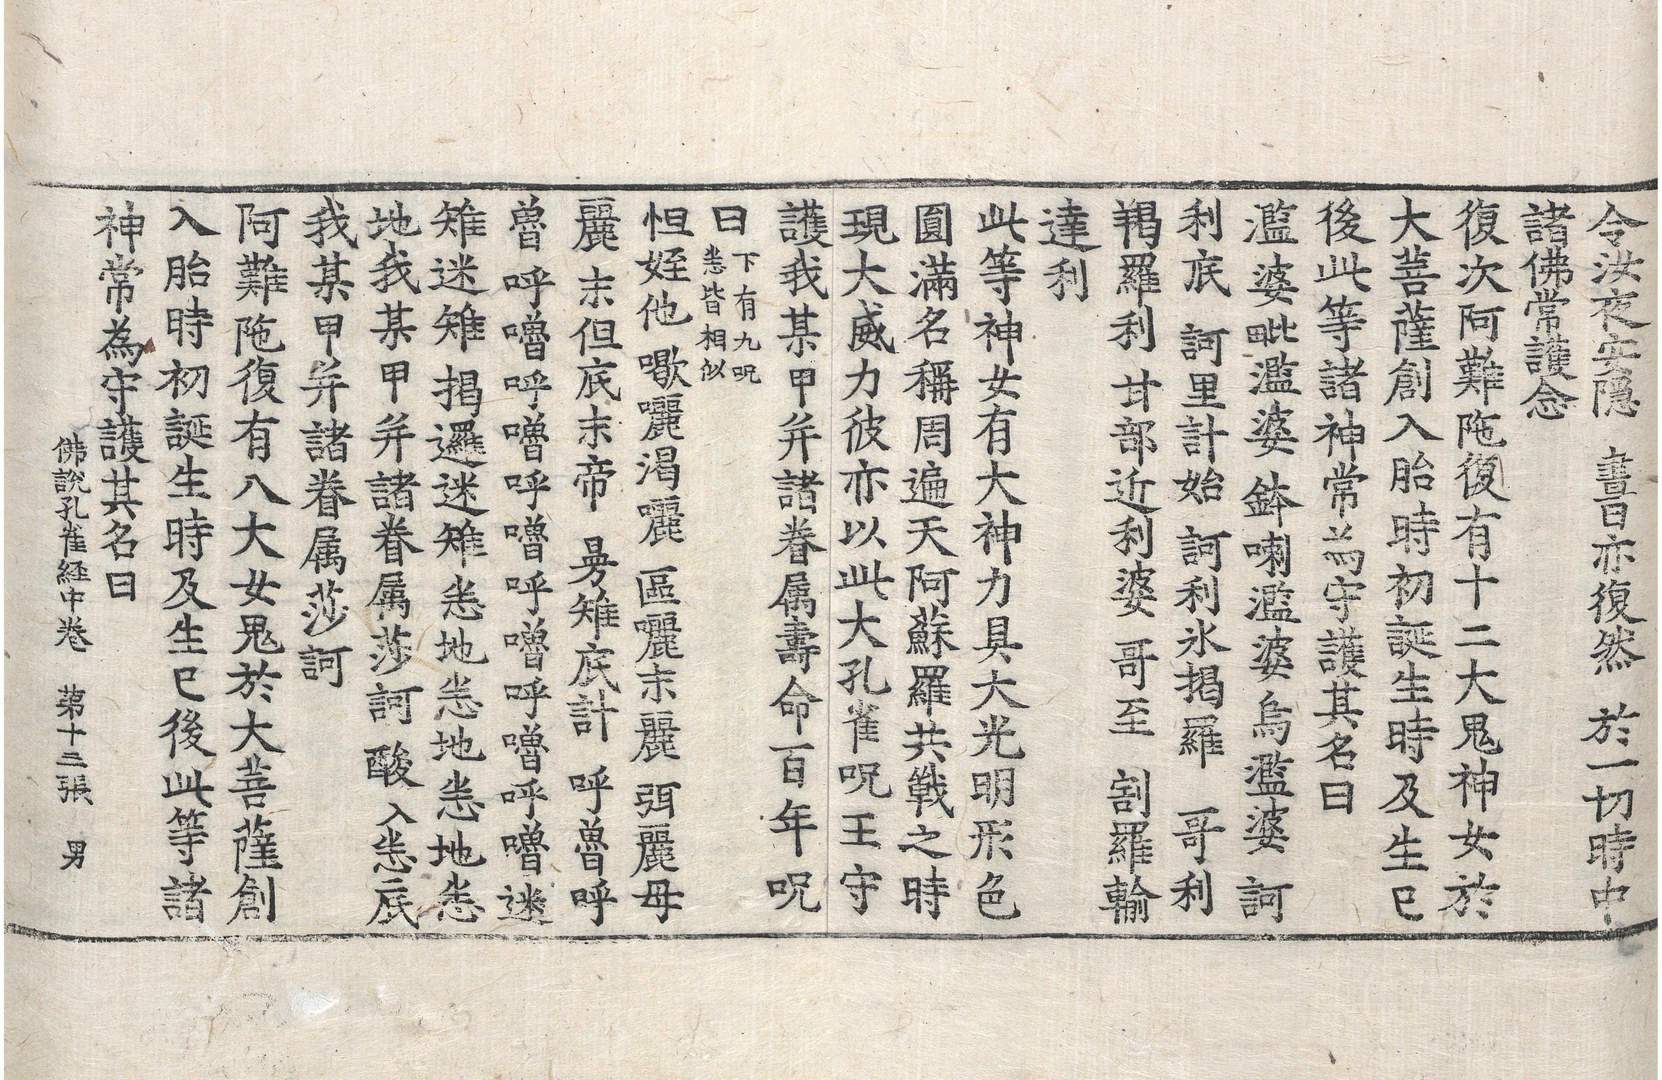 令汝夜安隱　晝日亦復然　於一切時中
諸佛常護念
復次阿難陁復有十二大鬼神女於
大菩薩創入胎時初誕生時及生已
後此等諸神常為守護其名曰
濫婆毗濫婆　鉢喇濫婆烏濫婆　訶
利底　訶里計始　訶利氷揭羅　哥利
羯羅利　甘部近利婆　哥至　割羅輸
達利
此等神女有大神力具大光明形色
圓滿名稱周遍天阿蘇羅共戰之時
現大威力彼亦以此大孔雀呪王守
護我某甲并諸眷属壽命百年呪
曰
下有九呪
悉皆相似
怛姪他　囉渴囉　區囉末麗　弭麗母
麗　末但底末帝　曼雉底計　呼魯呼
魯呼嚕呼嚕呼嚕呼嚕呼嚕呼嚕迷
雉迷雉　揭邏迷雉悉地悉地悉地悉
地我某甲并諸眷属莎訶　酸入悉底
我某甲并諸眷属莎訶
阿難陁復有八大女鬼於大菩薩創
入胎時初誕生時及生已後此等諸
神常為守護其名曰
佛說孔雀経中卷　第十三張　男